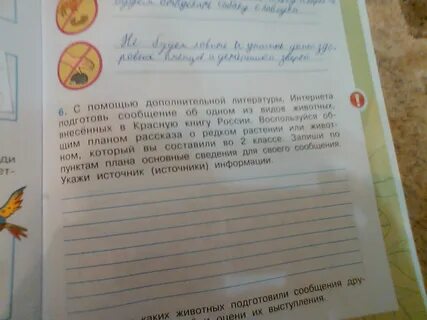 будем
Не будем ловить и уносить домой здо-
ровых птенцов и детёнышей зверей
6. С помощью дополнительной литературы, Интернета
подготовь сообщение об одном из видов животных,
внесённых в Красную книгу России. Воспользуйся об-
щим планом рассказа о редком растении или живот-
ном, который вы составили во 2 классе. Запиши по
пунктам плана основные сведения для своего сообщения.
Укажи источник (источники) информации.
каких животных подготовили сообщения дру-
и оцени их выступления.